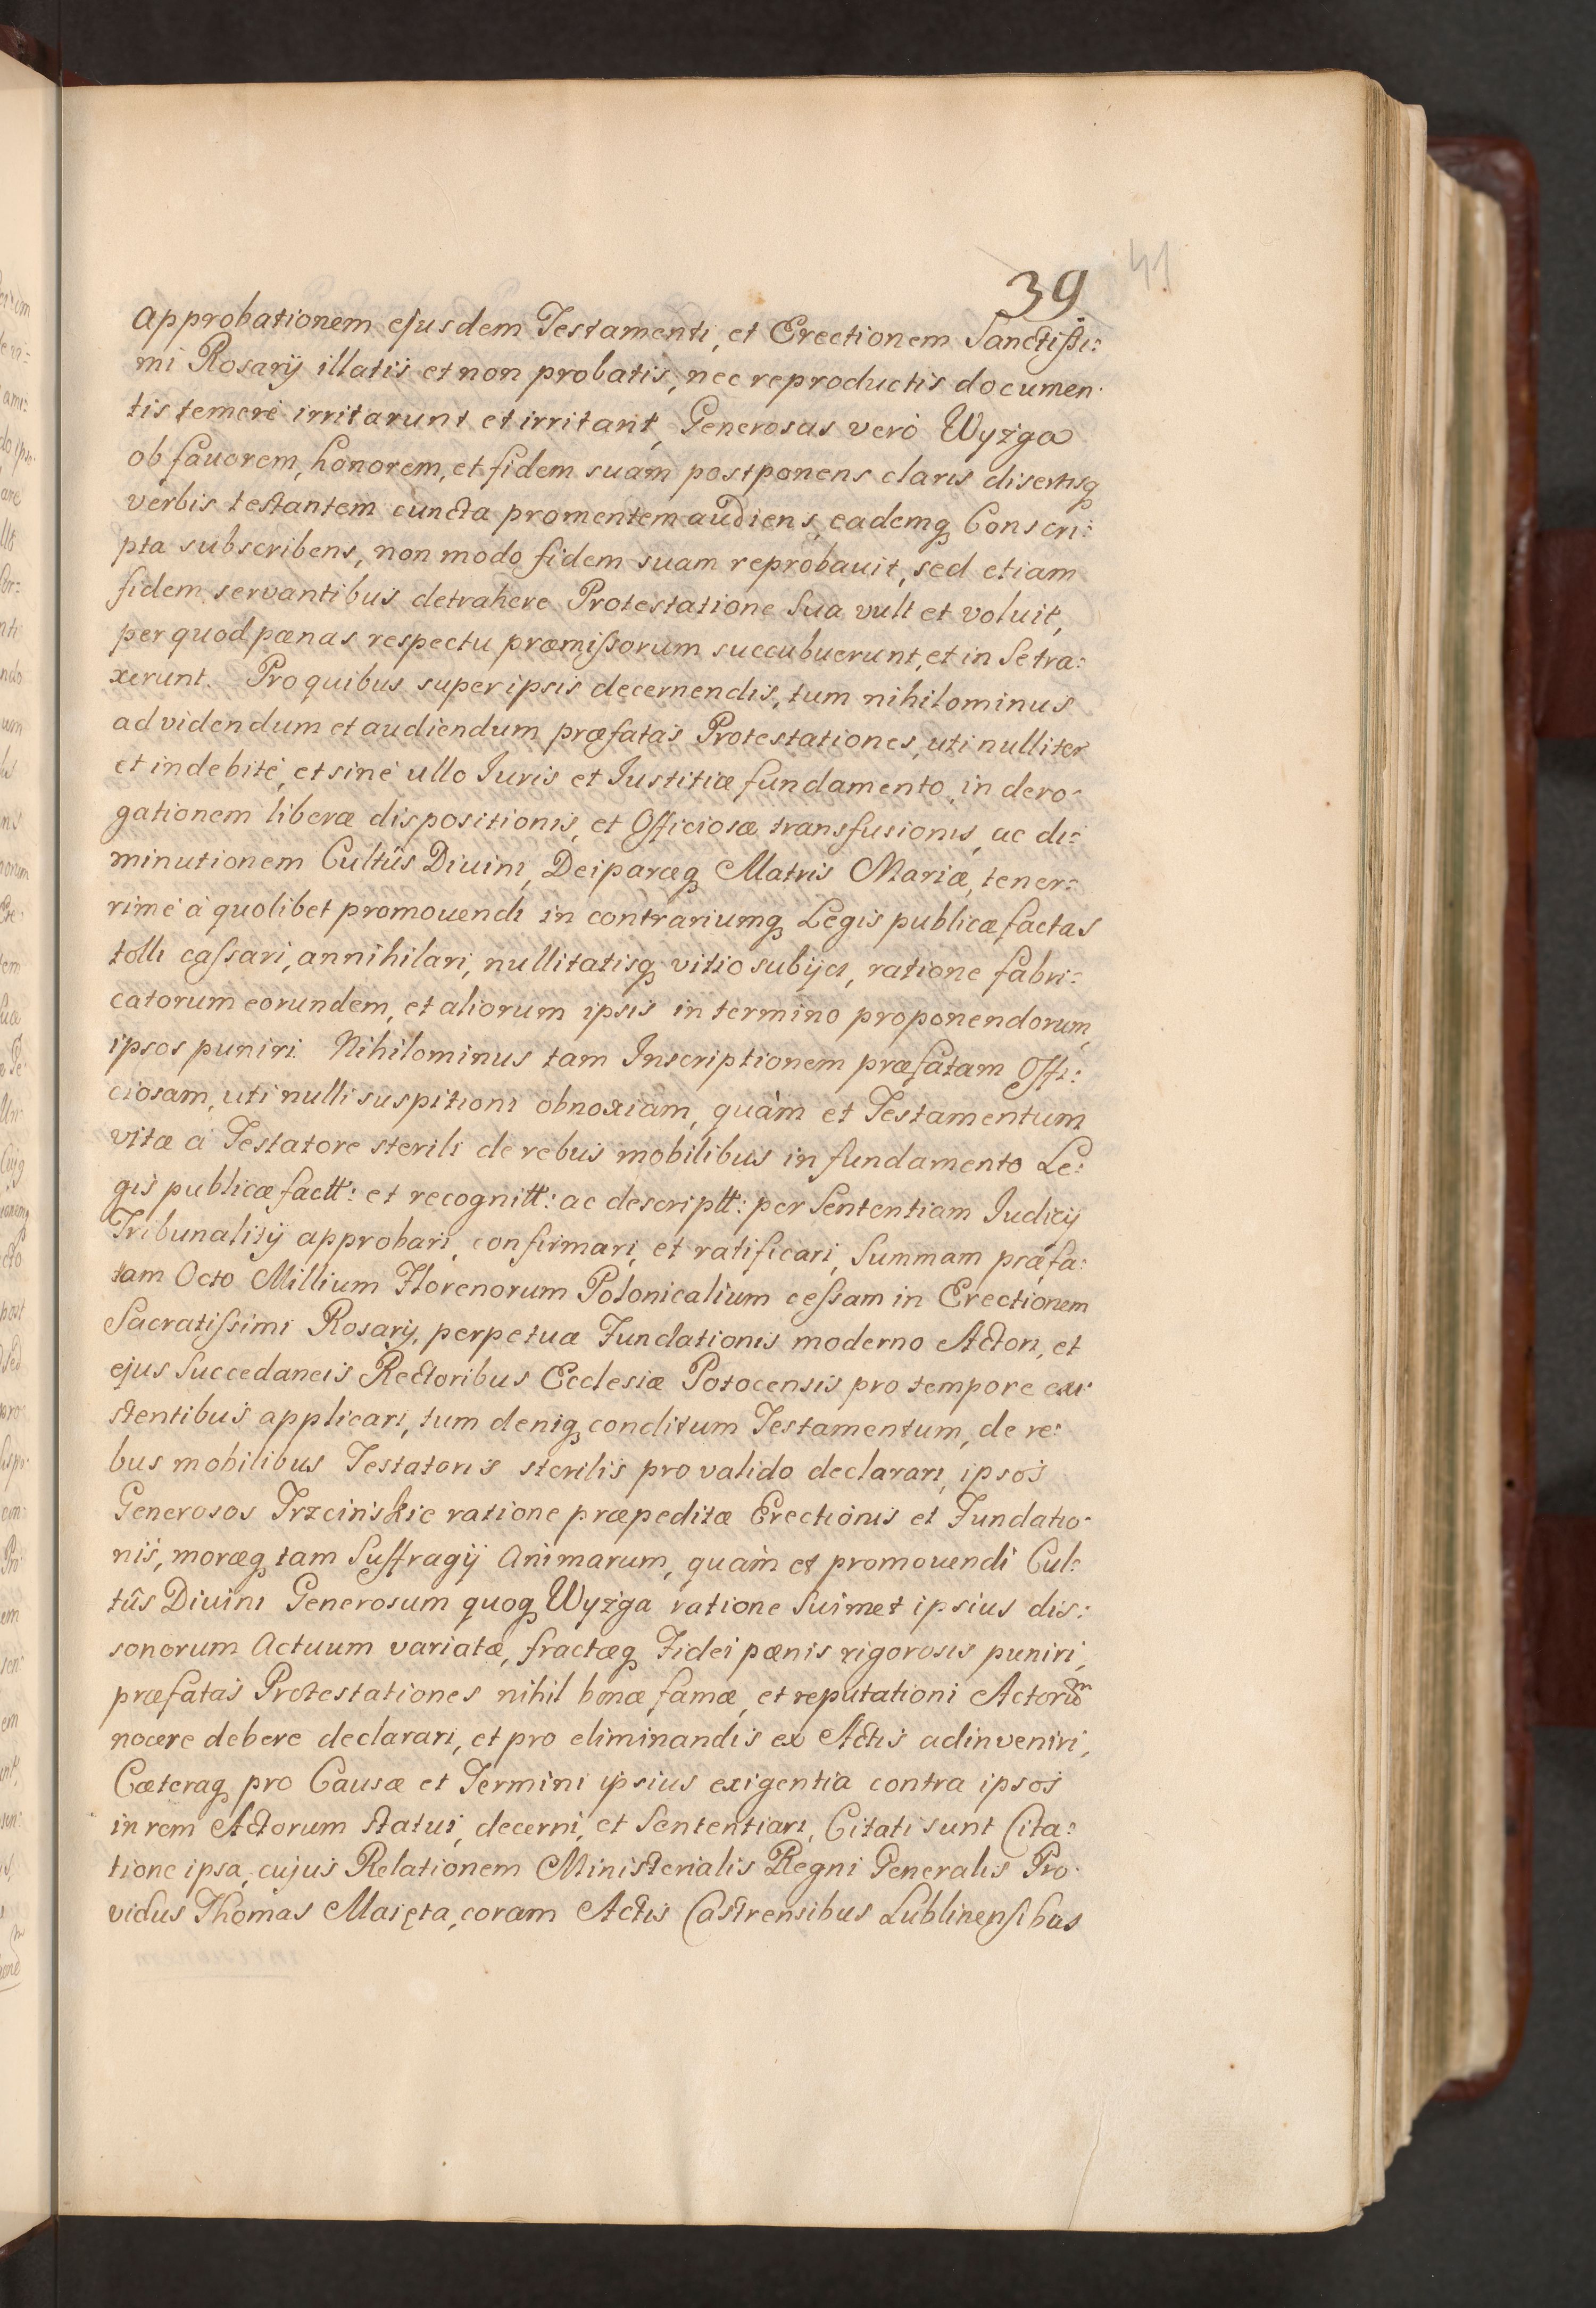 39.
41
approbationem ejusdem Testamenti, et Erectionem Sanctissi:
mi Rosarÿ illatis et non probatis, nec reproductis documen:
tis temerè irritarunt et irritant, Generosus verò Wyżga
ob fauorem, honorem, et fidem suam postponens claris disertisq
verbis testantem cuncta promentem audiens, eademq Conscri:
pta subscribens, non modo fidem suam reprobauit, sed etiam
fidem servantibus detrahere Protestatione Sua vult et voluit,
per quod pænas respectu præmissorum succubuerunt, et in Se tra:
xerunt. Pro quibus super ipsis decernendis, tum nihilominus
ad videndum et audiendum præfatas Protestationes, uti nulliter
et indebitè, et sinè ullo Iuris et Iustitiæ fundamento, in dero:
gationem liberæ dispositionis, et Officiosæ transfusionis, ac di:
minutionem Cultûs Diuini, Deiparæq Matris Mariæ, tener:
rimè à quolibet promouendi in contrariumq Legis publicæ factas
tolli cassari, annihilari, nullitatisq vitio subÿci, ratione fabri:
catorum eorundem, et aliorum ipsis in termino proponendorum,
ipsos puniri. Nihilominus tam Inscriptionem præfatam Offi:
ciosam, uti nulli suspitioni obnoxiam, quàm et Testamentum
vitæ à Testatore sterili de rebus mobilibus in fundamento Le:
gis publicæ factt: et recognitt: ac descriptt: per Sententiam Iudicÿ
Tribunalitÿ approbari, confirmari, et ratificari, Summam præfa:
tam Octo Millium Florenorum Polonicalium cessam in Erectionem
Sacratissimi Rosarÿ, perpetuæ Fundationis moderno Actori, et
ejus Succedaneis Rectoribus Ecclesiæ Potocensis pro tempore exi:
stentibus applicari, tum deniq conditum Testamentum, de re:
bus mobilibus Testatoris sterilis pro valido declarari, ipsos
Generosos Trzcinskie ratione præpeditæ Erectionis et Fundatio:
nis, moræq tam Suffragÿ Animarum, quàm et promouendi Cul:
tûs Diuini Generosum quoq Wyżga ratione Suimet ipsius dis:
sonorum Actuum variatæ, fractæq Fidei pænis rigorosis puniri,
præfatas Protestationes nihil bonæ famæ, et reputationi Actorum
nocere debere declarari, et pro eliminandis ex Actis adinveniri,
Cæteraq pro Causæ et Termini ipsius exigentia contra ipsos
in rem Actorum statui, decerni, et Sententiari, Citati sunt Cita:
tione ipsa, cujus Relationem Ministerialis Regni Generalis Pro:
vidus Thomas Maięta, coram Actis Castrensibus Lublinensibus